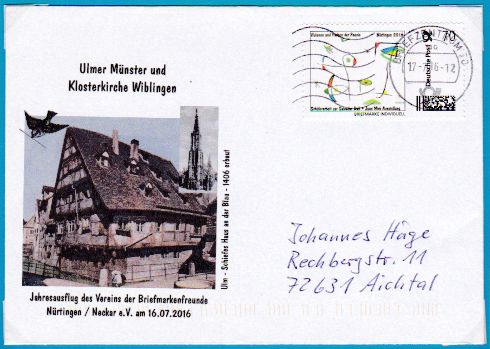 Ulmer Münster und
Klosterkirche Wiblingen
Ulm - Schiefes Haus an der Blau - 1406 erbaut
Jahresausflug des Vereins der Briefmarkenfreunde
Nürtingen / Neckar e.V. am 16.07.2016
Visionen und Farben der Poesie Nürtingen 2016
70
Deutsche Post
Joan Miró Ausstellung
BRIEFMARKE INDIVIDUELL
BRIEFZENTRUM 70
Johannes Häge
Rechbergstr. 11
72631 Aichtal